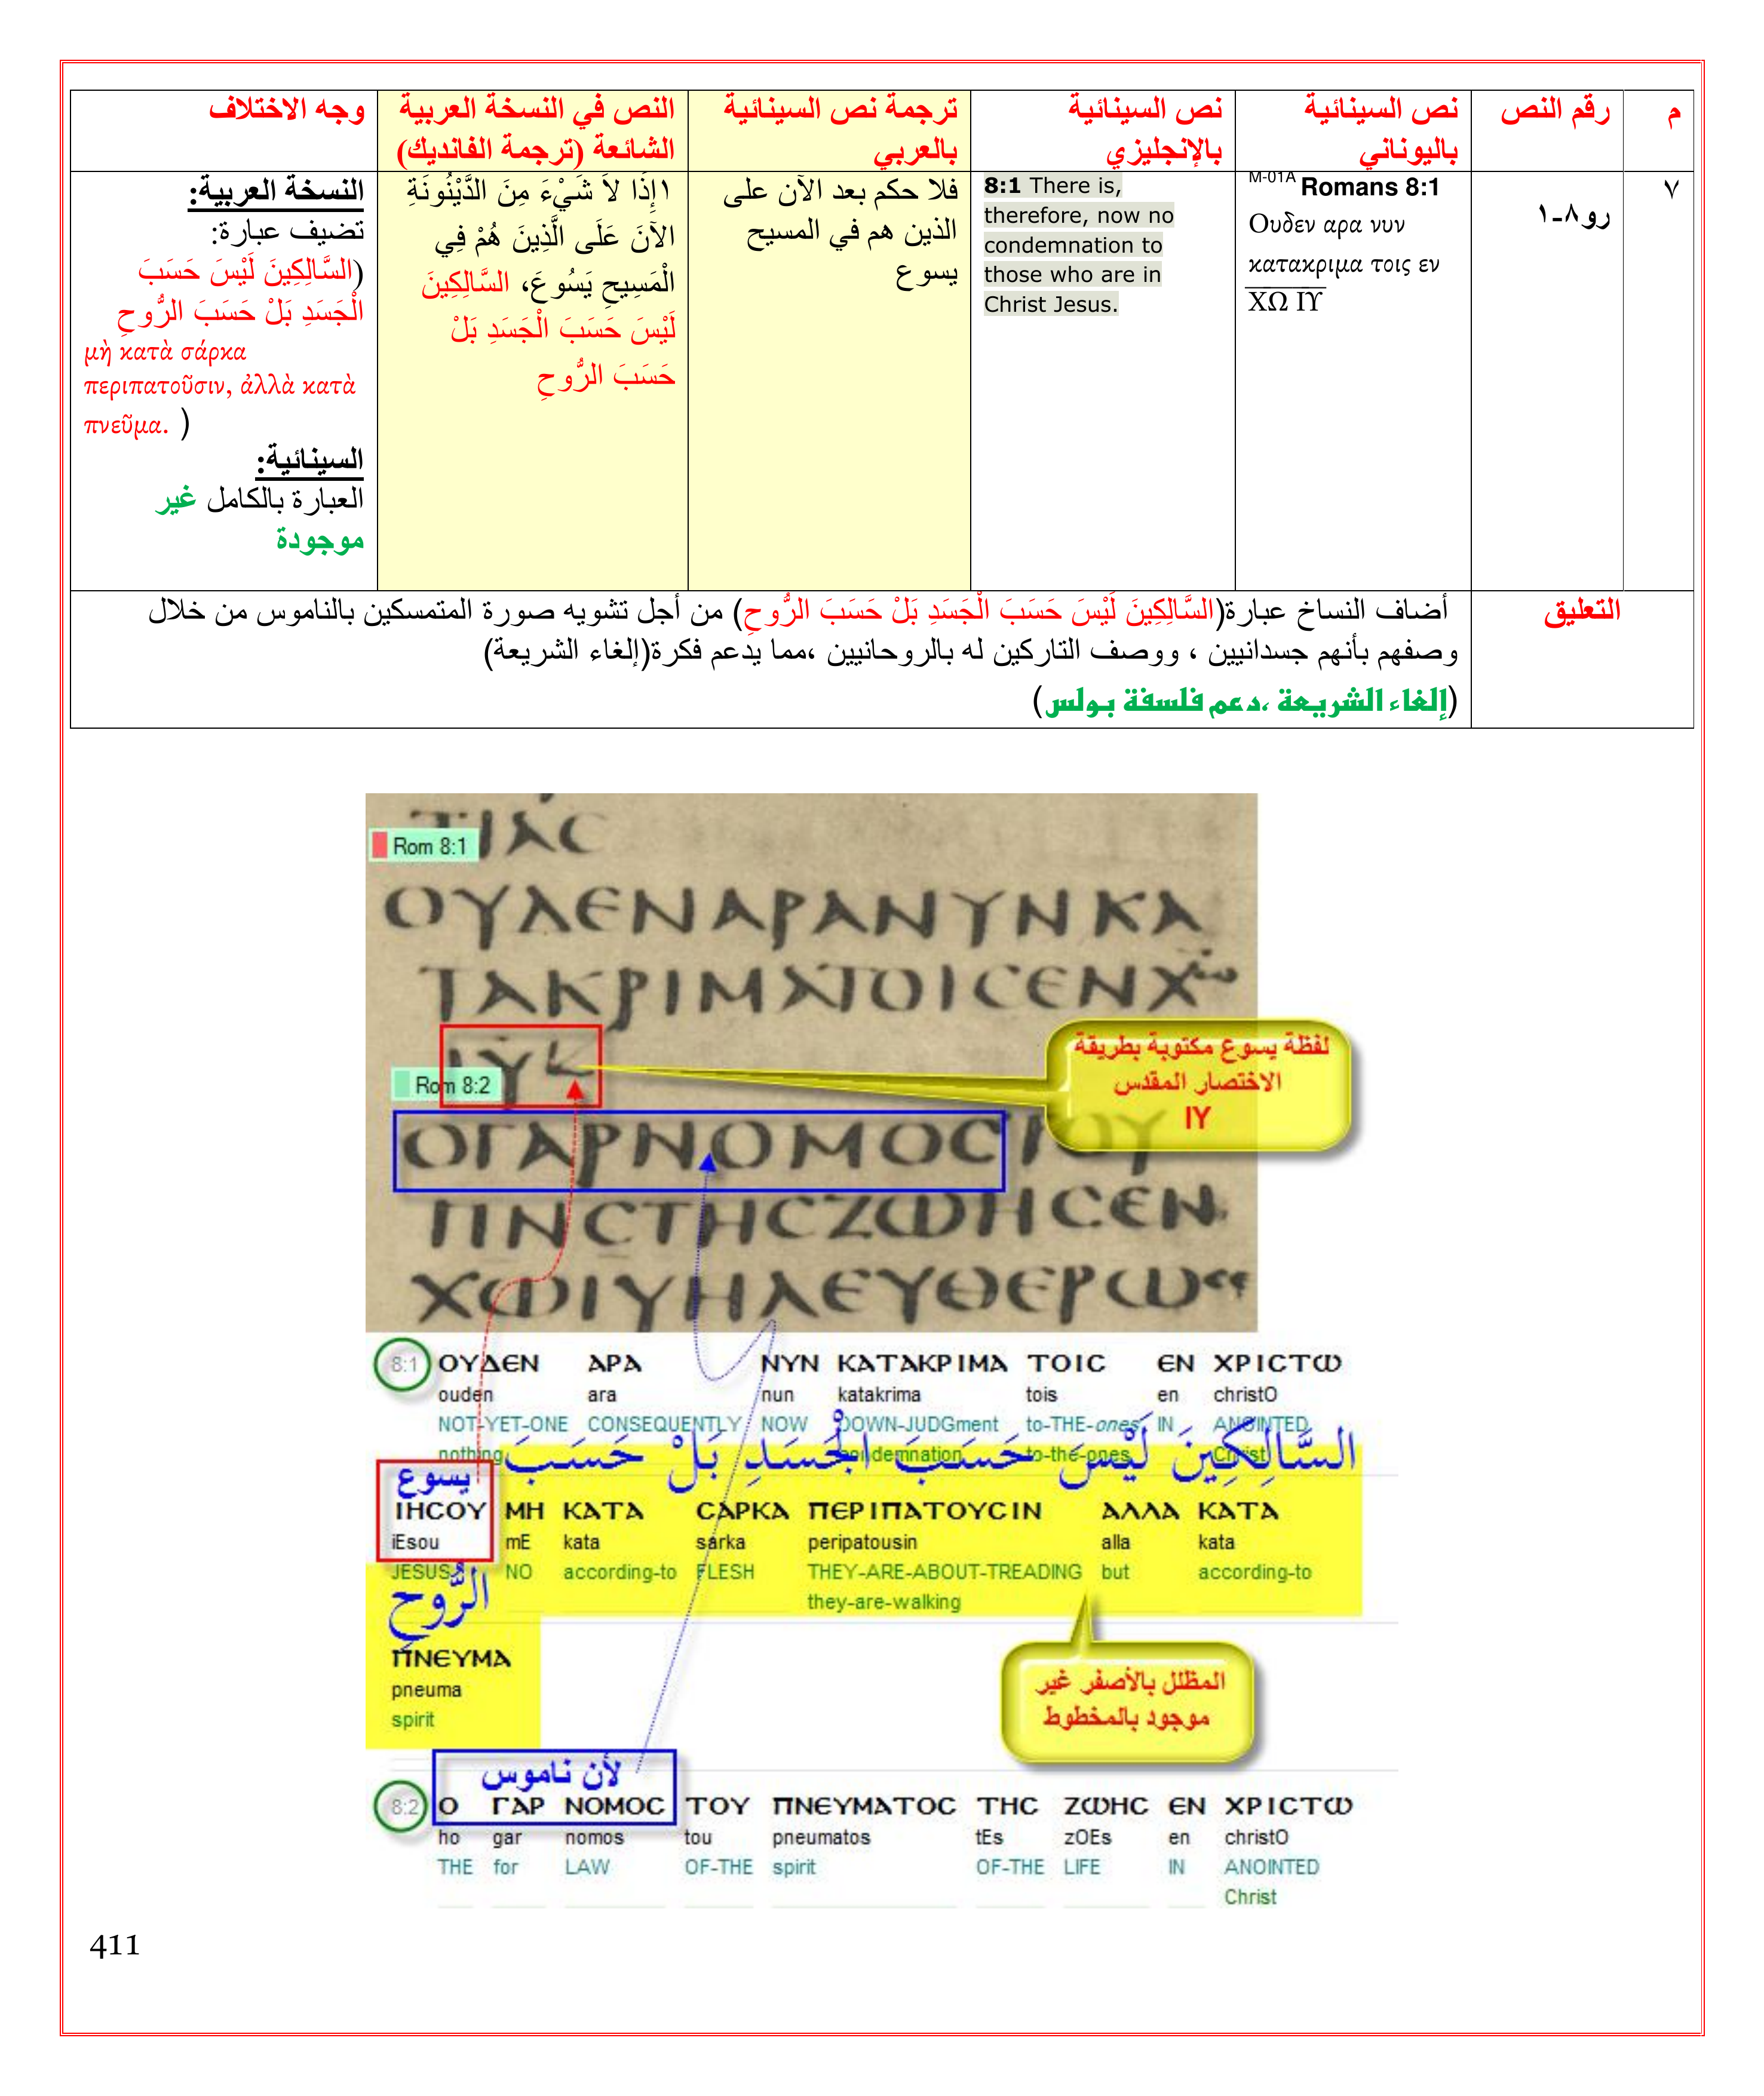 م
رقم النص
نص السينائية
باليوناني
نص السينائية
بالإنجليزي
ترجمة نص السينائية
بالعربي
النص في النسخة العربية
الشائعة (ترجمة الفانديك)
وجه الاختلاف
٧
رو٨-١
M-01A Romans 8:1
Ουδεν αρα νυν
κατακριμα τοις εν
ΧΩ ΙΥ
8:1 There is,
therefore, now no
condemnation to
those who are in
Christ Jesus.
فلا حكم بعد الآن على
الذين هم في المسيح
يسوع
١إِذًا لاَ شَيْءَ مِنَ الدَّيْنُونَةِ
الآنَ عَلَى الَّذِينَ هُمْ فِي
الْمَسِيحِ يَسُوعَ، السَّالِكِينَ
لَيْسَ حَسَبَ الْجَسَدِ بَلْ
حَسَبَ الرُّوحِ
النسخة العربية:
تضيف عبارة:
(السَّالِكِينَ لَيْسَ حَسَبَ
الْجَسَدِ بَلْ حَسَبَ الرُّوحِ
μὴ κατὰ σάρκα
περιπατοῦσιν, ἀλλὰ κατὰ
πνεῦμα. )
السينائية:
العبارة بالكامل غير
موجودة
التعليق
أضاف النساخ عبارة(السَّالِكِينَ لَيْسَ حَسَبَ الْجَسَدِ بَلْ حَسَبَ الرُّوحِ) من أجل تشويه صورة المتمسكين بالناموس من خلال
وصفهم بأنهم جسدانيين ، ووصف التاركين له بالروحانيين ،مما يدعم فكرة(إلغاء الشريعة)
(إلغاء الشريعة ،دعم فلسفة بولس)
ΤΙΑC
Rom 8:1
ΟΥΔΕΝΑΡΑΝΥΝΚΑ
ΤΑΚΡΙΜΑΤΟΙCΕΝΧω
ΙΥ
Rom 8:2
لفظة يسوع مكتوبة بطريقة
الاختصار المقدس
IY
ΟΓΑΡΝΟΜΟCΤΟΥ
ΠΝCΤΗCΖΩΗCΕΝ
ΧΩΙΥΗΛΕΥΘΕΡΩ
8:1 ΟΥΔΕΝ ΑΡΑ ΝΥΝ ΚΑΤΑΚΡΙΜΑ ΤΟΙC ΕΝ ΧΡΙCΤΩ
ouden ara nun katakrima tois en christO
NOT-YET-ONE CONSEQUENTLY NOW DOWN-JUDGment to-THE-ones IN ANOINTED
nothing condemnation to-the-ones Christ
السَّالِكِينَ لَيْسَ حَسَبَ الْجَسَدِ بَلْ حَسَبَ
يسوع
ΙΗCΟΥ ΜΗ ΚΑΤΑ CΑΡΚΑ ΠΕΡΙΠΑΤΟΥCΙΝ ΑΛΛΑ ΚΑΤΑ
iEsou mE kata sarka peripatousin alla kata
JESUS NO according-to FLESH THEY-ARE-ABOUT-TREADING but according-to
they-are-walking
الرُّوحِ
ΠΝΕΥΜΑ
pneuma
spirit
المظلل بالأصفر غير
موجود بالمخطوط
لأن ناموس
8:2 Ο ΓΑΡ ΝΟΜΟC ΤΟΥ ΠΝΕΥΜΑΤΟC ΤΗC ΖΩΗC ΕΝ ΧΡΙCΤΩ
ho gar nomos tou pneumatos tEs zOEs en christO
THE for LAW OF-THE spirit OF-THE LIFE IN ANOINTED
Christ
411